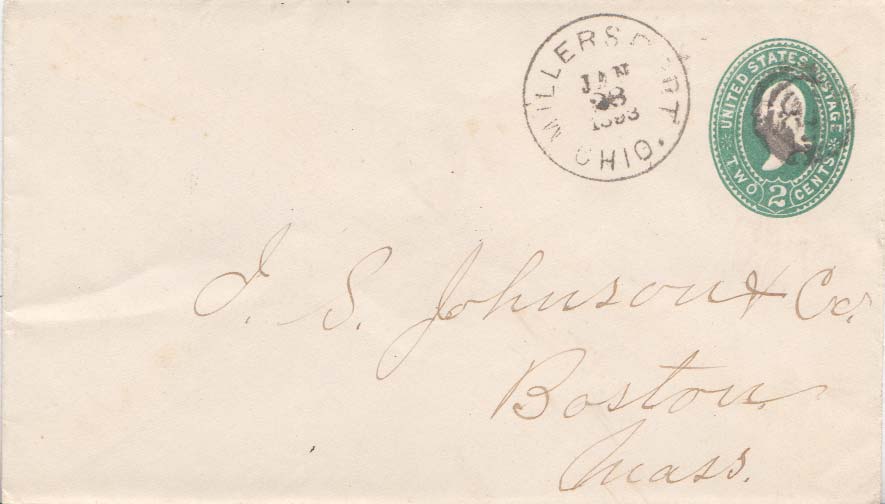 MILLERSPORT
JAN
28
1893
OHIO.
UNITED STATES POSTAGE
TWO 2 CENTS
I. S. Johnson & Co.
Boston
Mass.